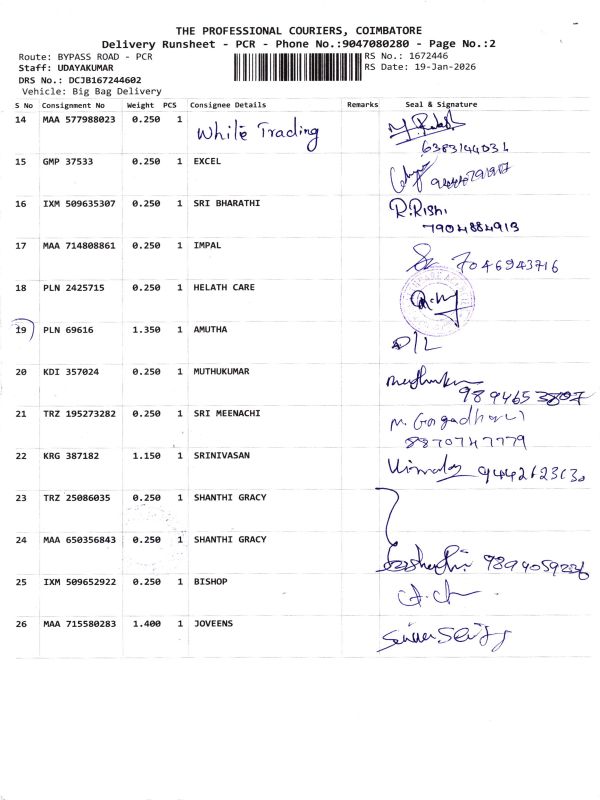 THE PROFESSIONAL COURIERS, COIMBATORE
Delivery Runsheet - PCR - Phone No.:9047080280 - Page No.:2
Route: BYPASS ROAD - PCR RS No.: 1672446
Staff: UDAYAKUMAR RS Date: 19-Jan-2026
DRS No.: DCJB167244602
Vehicle: Big Bag Delivery
S No Consignment No Weight PCS Consignee Details Remarks Seal & Signature
14 MAA 577988023 0.250 1 White Trading
6383144031
15 GMP 37533 0.250 1 EXCEL
16 IXM 509635307 0.250 1 SRI BHARATHI R.Rishi
7904884913
17 MAA 714808861 0.250 1 IMPAL 7046943716
18 PLN 2425715 0.250 1 HELATH CARE
19 PLN 69616 1.350 1 AMUTHA D/L
20 KDI 357024 0.250 1 MUTHUKUMAR
21 TRZ 195273282 0.250 1 SRI MEENACHI
8870747779
22 KRG 387182 1.150 1 SRINIVASAN
23 TRZ 25086035 0.250 1 SHANTHI GRACY
24 MAA 650356843 0.250 1 SHANTHI GRACY
25 IXM 509652922 0.250 1 BISHOP
26 MAA 715580283 1.400 1 JOVEENS